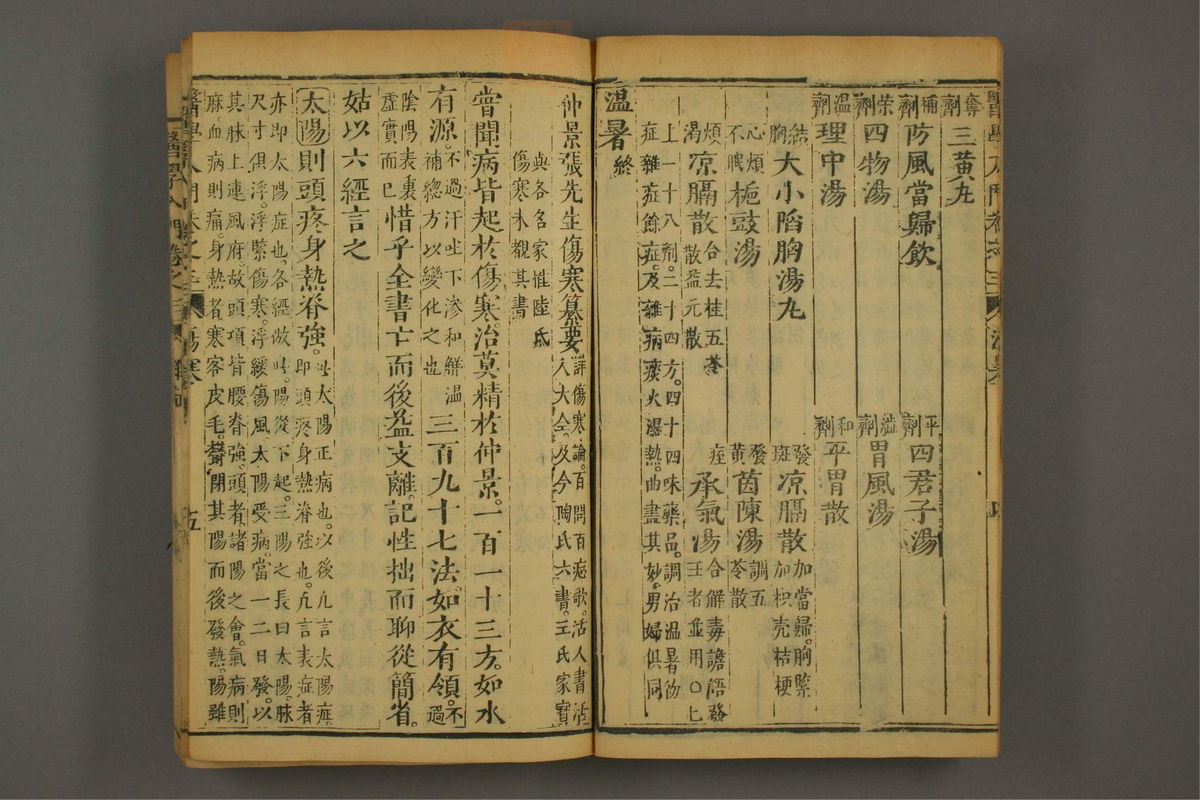 奪劑 三黃丸
補劑 防風當歸飲 平劑 四君子湯
榮劑 四物湯 溢劑 胃風湯
溫劑 理中湯 和劑 平胃散
結胸 大小陷胸湯丸 發斑 凉膈散 加當歸。胸緊加枳壳桔梗
心煩不眠 梔豉湯 發黃 茵陳湯 調五苓散
煩渴 凉膈散 合去桂五苓散益元散 痓 承氣湯 合解毒譫語發
上一十八劑。二十四方。四十四味藥品。調治溫暑彷
症雜症餘症。及雜病痰火濕熱。曲盡其妙。男婦俱同
溫暑終
仲景張先生傷寒纂要 詳傷寒論。百問百症歌。活人書活
入大全。及今陶氏六書。王氏家寶
與各名家惟陸氏
傷寒未覩其書
嘗聞病皆起於傷寒。治莫精於仲景。一百一十三方。如水
有源。不過汗吐下滲和鮮溫補緫方以變化之也 三百九十七法。如衣有領。不過
陰陽表裏虛實而已 惜乎全書亡而後益支離。記性拙而聊從簡省。
姑以六經言之
太陽則頭疼身熱脊強。此太陽正病也。以後凡言太陽症。
即頭疼身熱脊強也。凡言表症者
亦即太陽症也。各經倣此。陽從下起。三陽之長曰太陽。脉
尺寸俱浮。浮緊傷寒。浮緩傷風太陽受病。當一二日發。以
其脉上連風府。故頭項皆腰脊強。頭者諸陽之會。氣病則
麻血病則痛。身熱者寒客皮毛。鬱閉其陽而後發熱。陽雖
傷寒
五